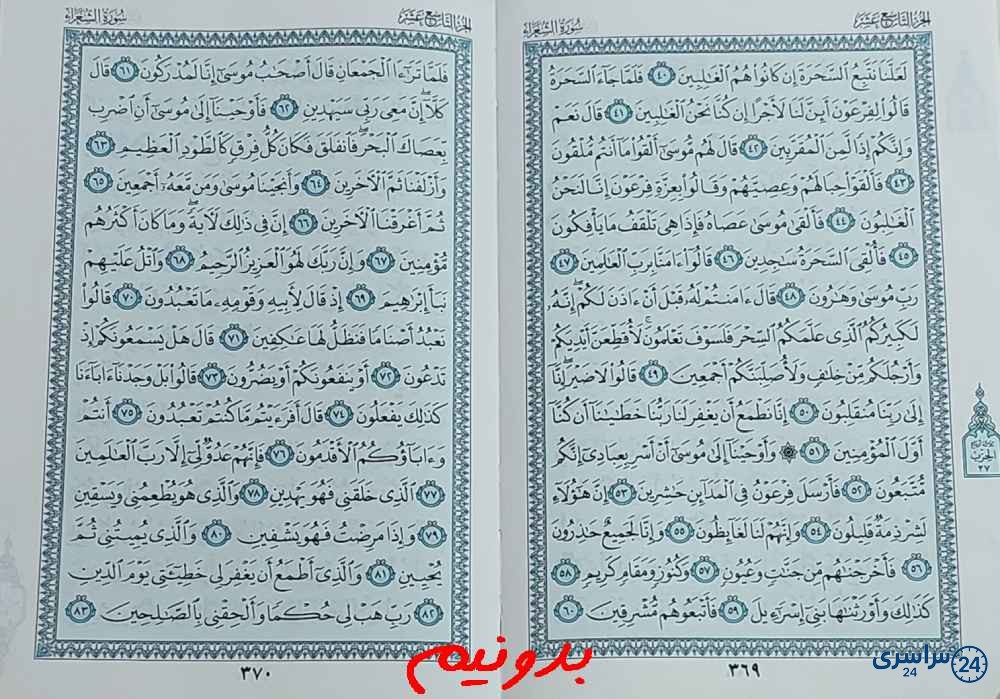 الجزء التاسع عشر
سورة الشعراء
لَعَلَّنَا نَتَّبِعُ السَّحَرَةَ إِن كَانُوا هُمُ الْغَالِبِينَ ٤٠ فَلَمَّا جَاءَ السَّحَرَةُ
قَالُوا لِفِرْعَوْنَ أَئِنَّ لَنَا لَأَجْرًا إِن كُنَّا نَحْنُ الْغَالِبِينَ ٤١ قَالَ نَعَمْ
وَإِنَّكُمْ إِذًا لَّمِنَ الْمُقَرَّبِينَ ٤٢ قَالَ لَهُم مُّوسَىٰ أَلْقُوا مَا أَنتُم مُّلْقُونَ
٤٣ فَأَلْقَوْا حِبَالَهُمْ وَعِصِيَّهُمْ وَقَالُوا بِعِزَّةِ فِرْعَوْنَ إِنَّا لَنَحْنُ
الْغَالِبُونَ ٤٤ فَأَلْقَىٰ مُوسَىٰ عَصَاهُ فَإِذَا هِيَ تَلْقَفُ مَا يَأْفِكُونَ
٤٥ فَأُلْقِيَ السَّحَرَةُ سَاجِدِينَ ٤٦ قَالُوا آمَنَّا بِرَبِّ الْعَالَمِينَ ٤٧
رَبِّ مُوسَىٰ وَهَارُونَ ٤٨ قَالَ آمَنتُمْ لَهُ قَبْلَ أَنْ آذَنَ لَكُمْ إِنَّهُ
لَكَبِيرُكُمُ الَّذِي عَلَّمَكُمُ السِّحْرَ فَلَسَوْفَ تَعْلَمُونَ لَأُقَطِّعَنَّ أَيْدِيَكُمْ
وَأَرْجُلَكُم مِّنْ خِلَافٍ وَلَأُصَلِّبَنَّكُمْ أَجْمَعِينَ ٤٩ قَالُوا لَا ضَيْرَ إِنَّا
إِلَىٰ رَبِّنَا مُنقَلِبُونَ ٥٠ إِنَّا نَطْمَعُ أَن يَغْفِرَ لَنَا رَبُّنَا خَطَايَانَا أَن كُنَّا
أَوَّلَ الْمُؤْمِنِينَ ٥١ ۞ وَأَوْحَيْنَا إِلَىٰ مُوسَىٰ أَنْ أَسْرِ بِعِبَادِي إِنَّكُم
مُّتَّبَعُونَ ٥٢ فَأَرْسَلَ فِرْعَوْنُ فِي الْمَدَائِنِ حَاشِرِينَ ٥٣ إِنَّ هَٰؤُلَاءِ
لَشِرْذِمَةٌ قَلِيلُونَ ٥٤ وَإِنَّهُمْ لَنَا لَغَائِظُونَ ٥٥ وَإِنَّا لَجَمِيعٌ حَاذِرُونَ
٥٦ فَأَخْرَجْنَاهُم مِّن جَنَّاتٍ وَعُيُونٍ ٥٧ وَكُنُوزٍ وَمَقَامٍ كَرِيمٍ ٥٨
كَذَٰلِكَ وَأَوْرَثْنَاهَا بَنِي إِسْرَائِيلَ ٥٩ فَأَتْبَعُوهُم مُّشْرِقِينَ ٦٠
٣٦٩
الحزب
٣٧
الجزء التاسع عشر
سورة الشعراء
فَلَمَّا تَرَاءَى الْجَمْعَانِ قَالَ أَصْحَابُ مُوسَىٰ إِنَّا لَمُدْرَكُونَ ٦١ قَالَ
كَلَّا إِنَّ مَعِيَ رَبِّي سَيَهْدِينِ ٦٢ فَأَوْحَيْنَا إِلَىٰ مُوسَىٰ أَنِ اضْرِب
بِّعَصَاكَ الْبَحْرَ فَانفَلَقَ فَكَانَ كُلُّ فِرْقٍ كَالطَّوْدِ الْعَظِيمِ ٦٣
وَأَزْلَفْنَا ثَمَّ الْآخَرِينَ ٦٤ وَأَنجَيْنَا مُوسَىٰ وَمَن مَّعَهُ أَجْمَعِينَ ٦٥
ثُمَّ أَغْرَقْنَا الْآخَرِينَ ٦٦ إِنَّ فِي ذَٰلِكَ لَآيَةً وَمَا كَانَ أَكْثَرُهُم
مُّؤْمِنِينَ ٦٧ وَإِنَّ رَبَّكَ لَهُوَ الْعَزِيزُ الرَّحِيمُ ٦٨ وَاتْلُ عَلَيْهِمْ
نَبَأَ إِبْرَاهِيمَ ٦٩ إِذْ قَالَ لِأَبِيهِ وَقَوْمِهِ مَا تَعْبُدُونَ ٧٠ قَالُوا
نَعْبُدُ أَصْنَامًا فَنَظَلُّ لَهَا عَاكِفِينَ ٧١ قَالَ هَلْ يَسْمَعُونَكُمْ إِذْ
تَدْعُونَ ٧٢ أَوْ يَنفَعُونَكُمْ أَوْ يَضُرُّونَ ٧٣ قَالُوا بَلْ وَجَدْنَا آبَاءَنَا
كَذَٰلِكَ يَفْعَلُونَ ٧٤ قَالَ أَفَرَأَيْتُم مَّا كُنتُمْ تَعْبُدُونَ ٧٥ أَنتُمْ
وَآبَاؤُكُمُ الْأَقْدَمُونَ ٧٦ فَإِنَّهُمْ عَدُوٌّ لِّي إِلَّا رَبَّ الْعَالَمِينَ
٧٧ الَّذِي خَلَقَنِي فَهُوَ يَهْدِينِ ٧٨ وَالَّذِي هُوَ يُطْعِمُنِي وَيَسْقِينِ
٧٩ وَإِذَا مَرِضْتُ فَهُوَ يَشْفِينِ ٨٠ وَالَّذِي يُمِيتُنِي ثُمَّ
يُحْيِينِ ٨١ وَالَّذِي أَطْمَعُ أَن يَغْفِرَ لِي خَطِيئَتِي يَوْمَ الدِّينِ
٨٢ رَبِّ هَبْ لِي حُكْمًا وَأَلْحِقْنِي بِالصَّالِحِينَ ٨٣
٣٧٠
بدونیم
سراسری 24
24